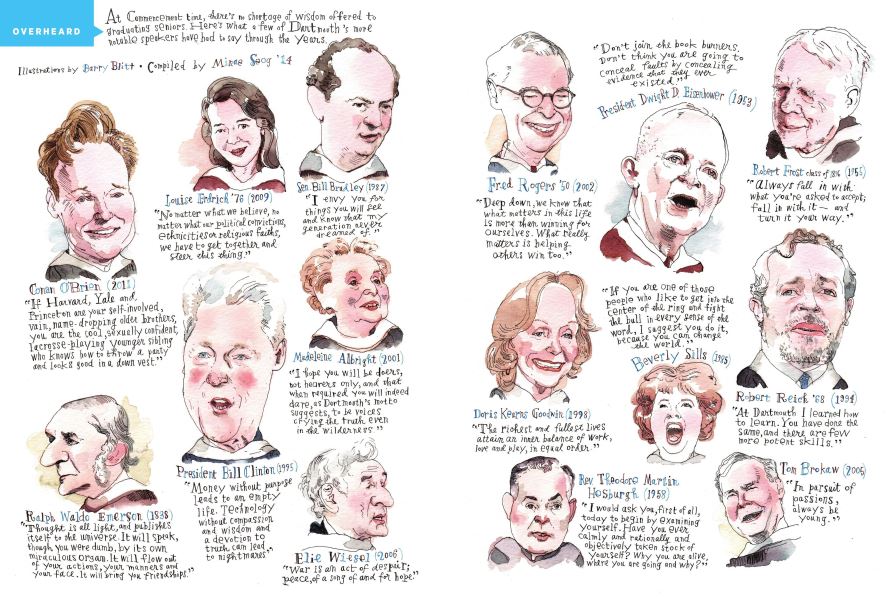 OVERHEARD
At Commencement time, there's no shortage of wisdom offered to
graduating seniors. Here's what a few of Dartmouth's more
notable speakers have had to say through the years.
Illustrations by Barry Blitt • Compiled by Minae Seog '14
Conan O'Brien (2011)
"If Harvard, Yale and
Princeton are your self-involved,
vain, name-dropping older brothers,
you are the cool, sexually confident,
lacrosse-playing younger sibling
who knows how to throw a party
and looks good in a down vest."
Louise Erdrich '76 (2009)
"No matter what we believe, no
matter what our political convictions,
ethnicities or religious faiths,
we have to get together and
steer this thing."
Sen. Bill Bradley (1987)
"I envy you for
things you will see
and know that my
generation never
dreamed of."
Madeleine Albright (2001)
"I hope you will be doers,
not hearers only, and that
when required you will indeed
dare, as Dartmouth's motto
suggests, to be voices
crying the truth even
in the wilderness."
President Bill Clinton (1995)
"Money without purpose
leads to an empty
life. Technology
without compassion
and wisdom and
a devotion to
truth can lead
to nightmares."
Ralph Waldo Emerson (1838)
"Thought is all light, and publishes
itself to the universe. It will speak,
though you were dumb, by its own
miraculous organ. It will flow out
of your actions, your manners and
your face. It will bring you friendships."
Elie Wiesel (2006)
"War is an act of despair;
peace, of a song of and for hope."
Fred Rogers '50 (2002)
"Deep down, we know that
what matters in this life
is more than winning for
ourselves. What really
matters is helping
others win too."
"Don't join the book burners.
Don't think you are going to
conceal faults by concealing
evidence that they ever
existed."
President Dwight D. Eisenhower (1953)
Robert Frost class of 1896 (1955)
"Always fall in with
what you're asked to accept;
fall in with it — and
turn it your way."
Doris Kearns Goodwin (1998)
"The richest and fullest lives
attain an inner balance of work,
love and play, in equal order."
"If you are one of those
people who like to get into the
center of the ring and fight
the bull in every sense of the
word, I suggest you do it,
because you can change
the world."
Beverly Sills (1985)
Robert Reich '68 (1994)
"At Dartmouth I learned how
to learn. You have done the
same, and there are few
more potent skills."
Rev. Theodore Martin
Hesburgh (1958)
"I would ask you, first of all,
today to begin by examining
yourself. Have you ever
calmly and rationally and
objectively taken stock of
yourself? Why you are alive,
where you are going and why?"
Tom Brokaw (2005)
"In pursuit of
passions,
always be
young."